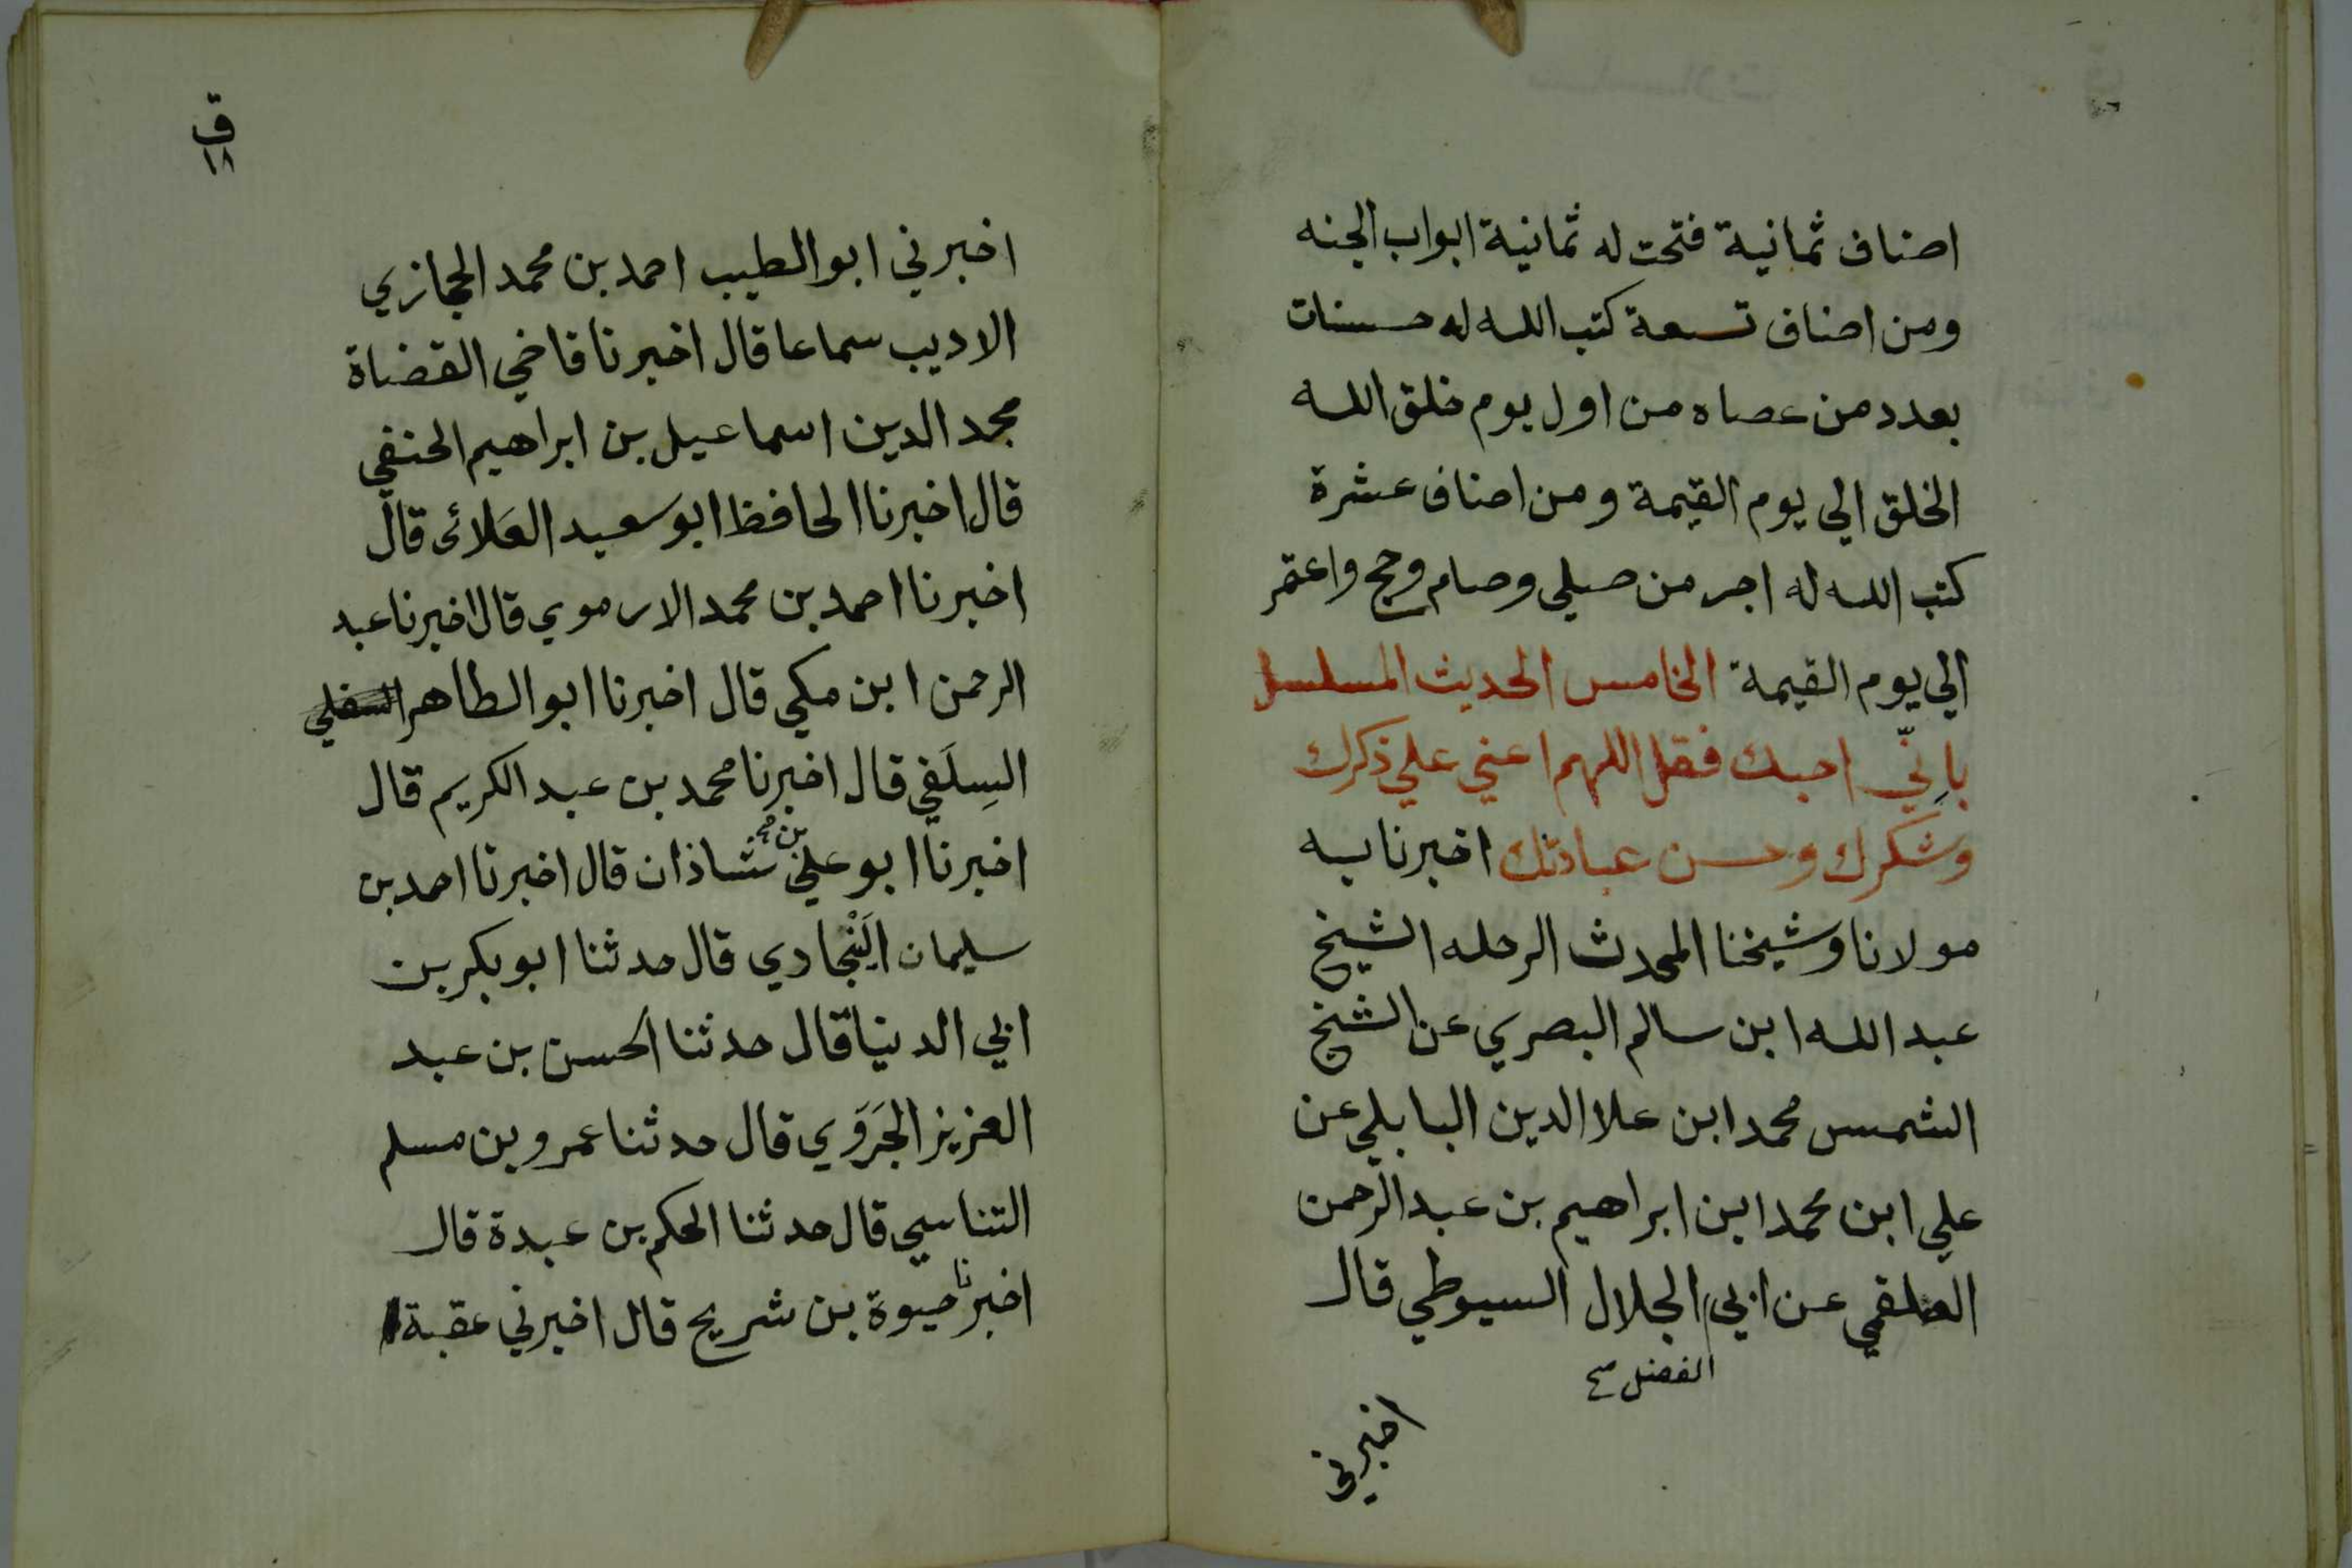 اصناف ثمانية فتحت له ثمانية ابواب الجنه
ومن اصناف تسعة كتب الله له حسنات
بعدد من عصاه من اول يوم خلق الله
الخلق الي يوم القيمة ومن اصناف عشرة
كتب الله له اجر من صلي وصام وحج واعتمر
الي يوم القيمة الخامس الحديث المسلسل
بإنّي احبك فقل اللهم اعني علي ذكرك
وشكرك وحسن عبادتك اخبرنا به
مولانا وشيخنا المحدث الرحله الشيخ
عبد الله ابن سالم البصري عن الشيخ
الشمس محمد ابن علا الدين البابلي عن
علي ابن محمد ابن ابراهيم بن عبد الرحمن
العلقمي عن ابي الجلال السيوطي قال
الفضل
اخبرني
ق
١٨
اخبرني ابو الطيب احمد بن محمد الحجازي
الاديب سماعا قال اخبرنا قاضي القضاة
مجد الدين اسماعيل بن ابراهيم الحنفي
قال اخبرنا الحافظ ابو سعيد العَلائى قال
اخبرنا احمد بن محمد الارموي قال اخبرنا عبد
الرحمن ابن مكي قال اخبرنا ابو الطاهر السفلي
السِلَفي قال اخبرنا محمد بن عبد الكريم قال
اخبرنا ابو علي بن شاذان قال اخبرنا احمد بن
سليمان النْجادي قال حدثنا ابو بكر بن
ابي الدنيا قال حدثنا الحسن بن عبد
العزيز الجَرَوَي قال حدثنا عمرو بن مسلم
التناسي قال حدثنا الحكم بن عبدة قال
اخبرنا حيوة بن شريح قال اخبرني عقبة